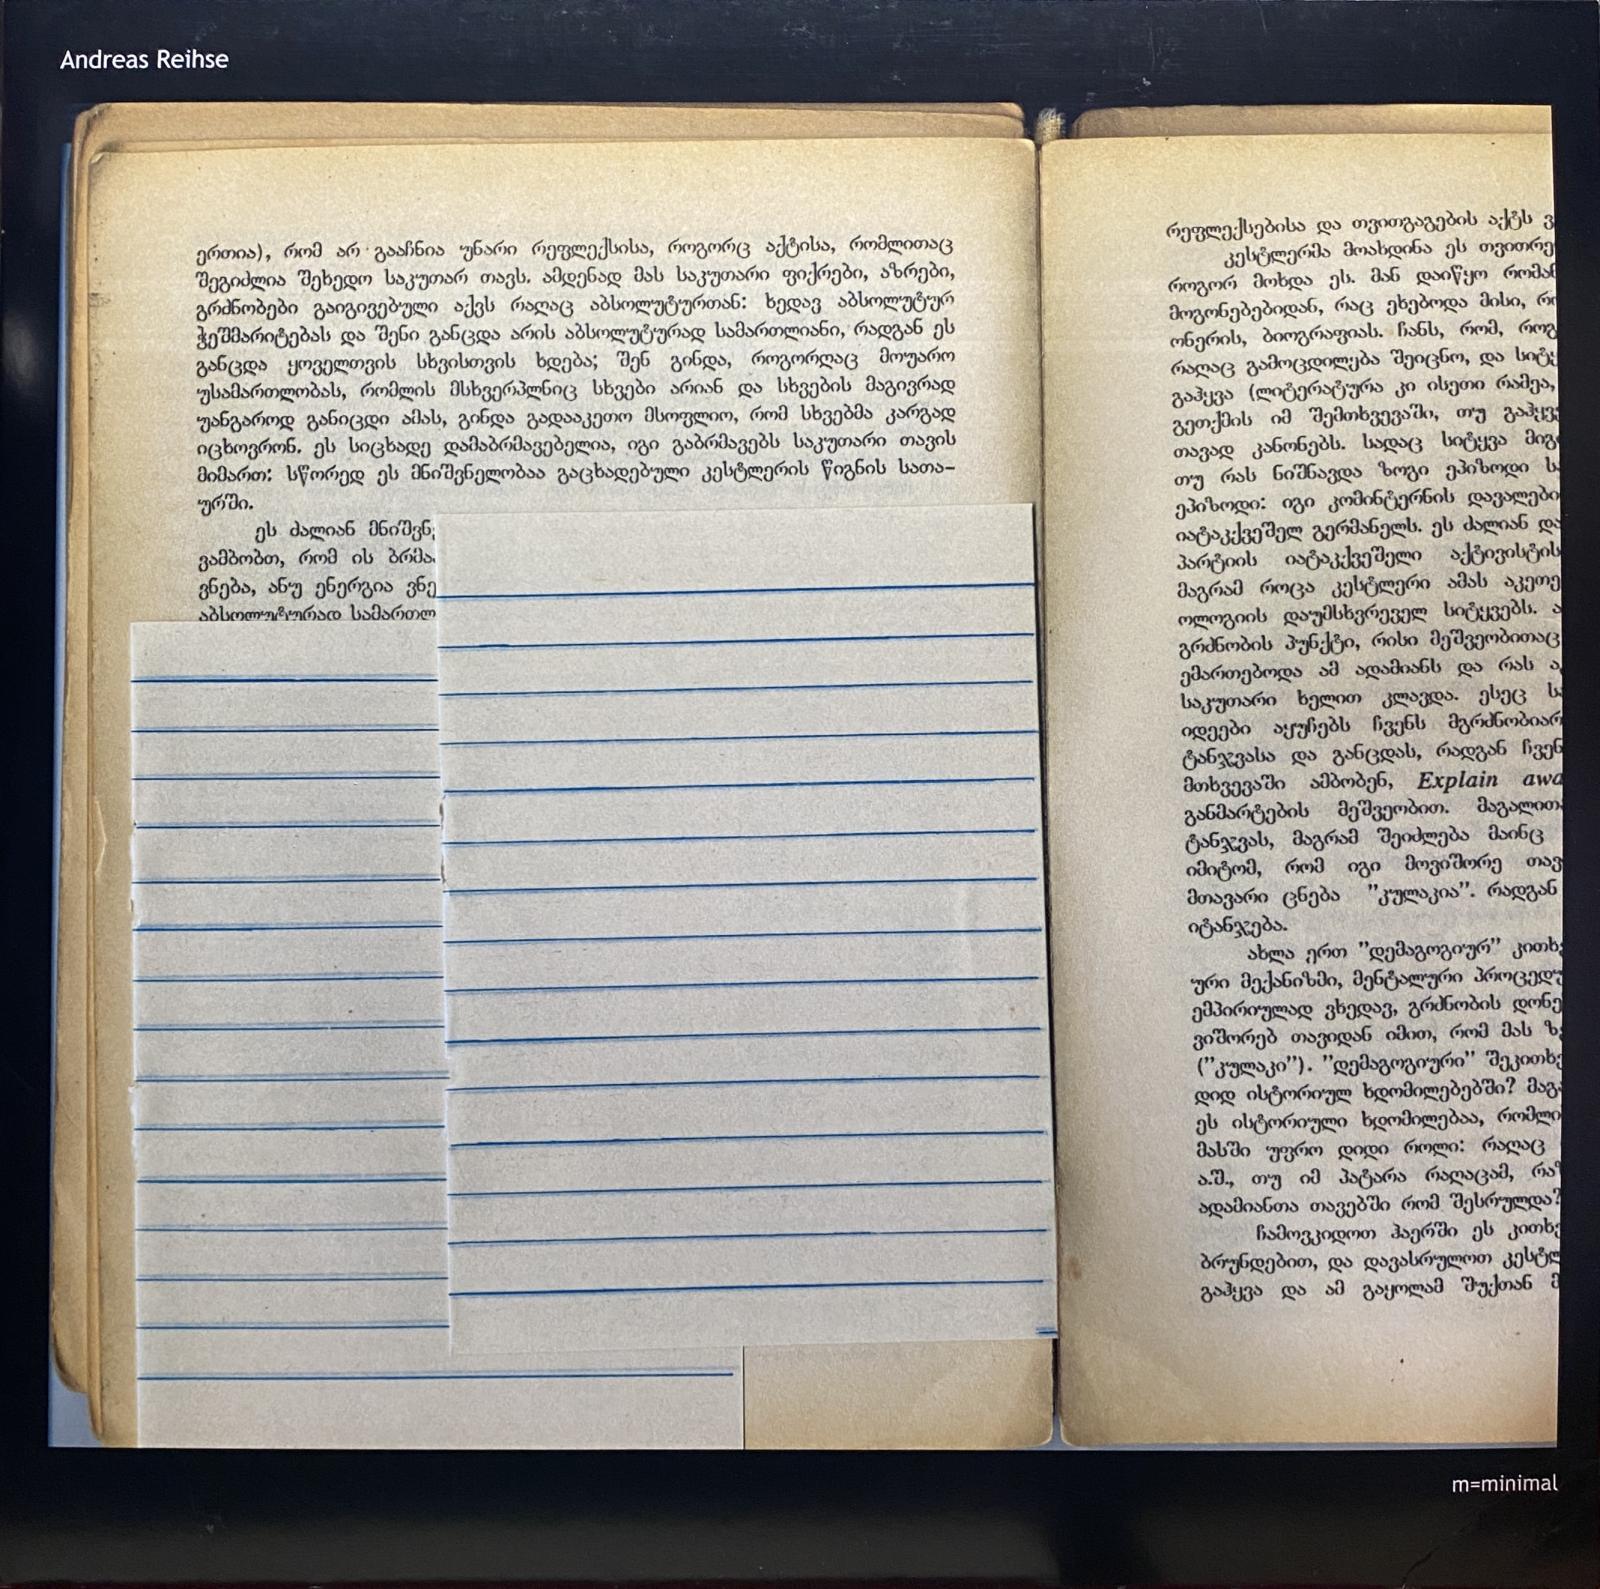 Andreas Reihse
ერთია), რომ არ გააჩნია უნარი რეფლექსისა, როგორც აქტისა, რომლითაც
შეგიძლია შეხედო საკუთარ თავს. ამდენად მას საკუთარი ფიქრები, აზრები,
გრძნობები გაიგივებული აქვს რაღაც აბსოლუტურთან: ხედავ აბსოლუტურ
ჭეშმარიტებას და შენი განცდა არის აბსოლუტურად სამართლიანი, რადგან ეს
განცდა ყოველთვის სხვისთვის ხდება; შენ გინდა, როგორღაც მოუარო
უსამართლობას, რომლის მსხვერპლნიც სხვები არიან და სხვების მაგივრად
უანგაროდ განიცდი ამას, გინდა გადააკეთო მსოფლიო, რომ სხვებმა კარგად
იცხოვრონ. ეს სიცხადე დამაბრმავებელია, იგი გაბრმავებს საკუთარი თავის
მიმართ: სწორედ ეს მნიშვნელობაა გაცხადებული კესტლერის წიგნის სათა-
ურში.
ეს ძალიან
ვამბობთ, რომ ის
ვნება, ანუ ენერგია
აბსოლუტურად
რეფლექსებისა და თვითგაგების აქტს
კესტლერმა მოახდინა ეს
როგორ მოხდა ეს. მან დაიწყო
მოგონებებიდან, რაც ეხებოდა მისი,
ონერის, ბიოგრაფიას. ჩანს, რომ,
რაღაც გამოცდილება შეიცნო, და
გაჰყვა (ლიტერატურა კი ისეთი რამეა,
გეთქმის იმ შემთხვევაში, თუ
თავად კანონებს. სადაც სიტყვა
თუ რას ნიშნავდა ზოგი ეპიზოდი
ეპიზოდი: იგი კომინტერნის
იატაკქვეშელ გერმანელს. ეს ძალიან
პარტიის იატაკქვეშელი
მაგრამ როცა კესტლერი ამას
ოლოგიის დაუმსხვრეველ სიტყვებს.
გრძნობის პუნქტი, რისი მეშვეობითაც
ემართებოდა ამ ადამიანს და რას
საკუთარი ხელით კლავდა. ესეც
იდეები აყუჩებს ჩვენს
ტანჯვასა და განცდას, რადგან
მთხვევაში ამბობენ, Explain
განმარტების მეშვეობით.
ტანჯვას, მაგრამ შეიძლება მაინც
იმიტომ, რომ იგი მოვიშორე
მთავარი ცნება "კულაკია". რადგან
იტანჯება.
ახლა ერთ "დემაგოგიურ"
ური მექანიზმი, მენტალური
ემპირიულად ვხედავ, გრძნობის
ვიშორებ თავიდან იმით, რომ მას
("კულაკი"). "დემაგოგიური"
დიდ ისტორიულ ხდომილებებში?
ეს ისტორიული ხდომილებაა,
მასში უფრო დიდი როლი: რაღაც
ა.შ., თუ იმ პატარა რაღაცამ,
ადამიანთა თავებში რომ შესრულდა?
ჩამოვკიდოთ ჰაერში ეს
ბრუნდებით, და დავასრულოთ
გაჰყვა და ამ გაყოლამ შუქთან
m=minimal